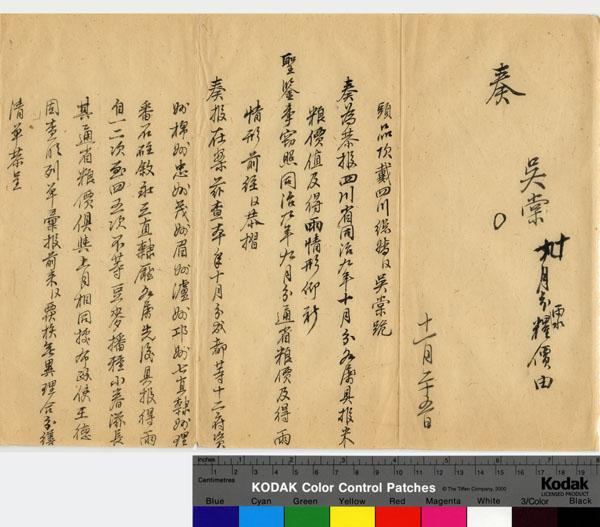 奏
吴棠
十月分雨水糧價由
十一月二十五日
頭品頂戴四川總督臣吴棠跪
奏為恭报四川省同治九年十月分各屬具报米
粮價值及得雨情形仰祈
聖鉴事窃照同治九年九月分通省粮價及得雨
情形前經臣恭摺
奏报在案茲查本年十月分成都等十二府資
州棉州忠州茂州眉州瀘州邛州七直隸州理
番石砫敘永三直隸廳各屬先後具报得雨
自一二次至四五次不等豆麥播種小春滋長
其通省粮價俱與上月相同據布政使王德
固查明列單彙报前来臣覆核無異理合分繕
清单恭呈
Inches
Centimetres
KODAK Color Control Patches
© The Tiffen Company, 2000
Kodak
LICENSED PRODUCT
Blue Cyan Green Yellow Red Magenta White 3/Color Black